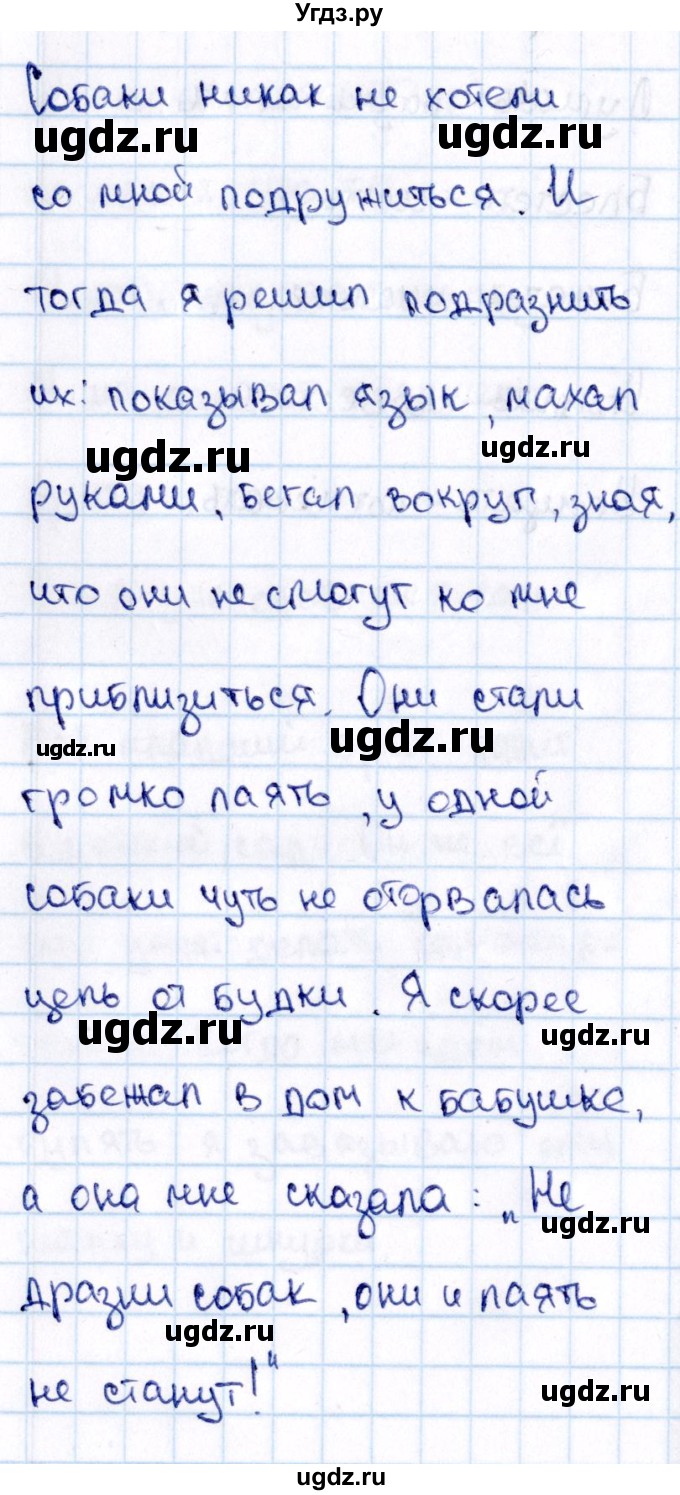 Угдз.ру
Собаки никак не хотели
ugdz.ru ugdz.ru
со мной подружиться. И
тогда я решил подразнить
их: показывал язык, махал
ugdz.ru ugdz.ru
руками, бегал вокруг, зная,
что они не смогут ко мне
приблизиться. Они стали
ugdz.ru ugdz.ru
громко лаять, у одной
собаки чуть не оторвалась
цепь от будки. Я скорее
ugdz.ru ugdz.ru
забежал в дом к бабушке,
а она мне сказала: „Не
ugdz.ru
дразни собак, они и лаять
ugdz.ru
не станут!“
ugdz.ru
ugdz.ru